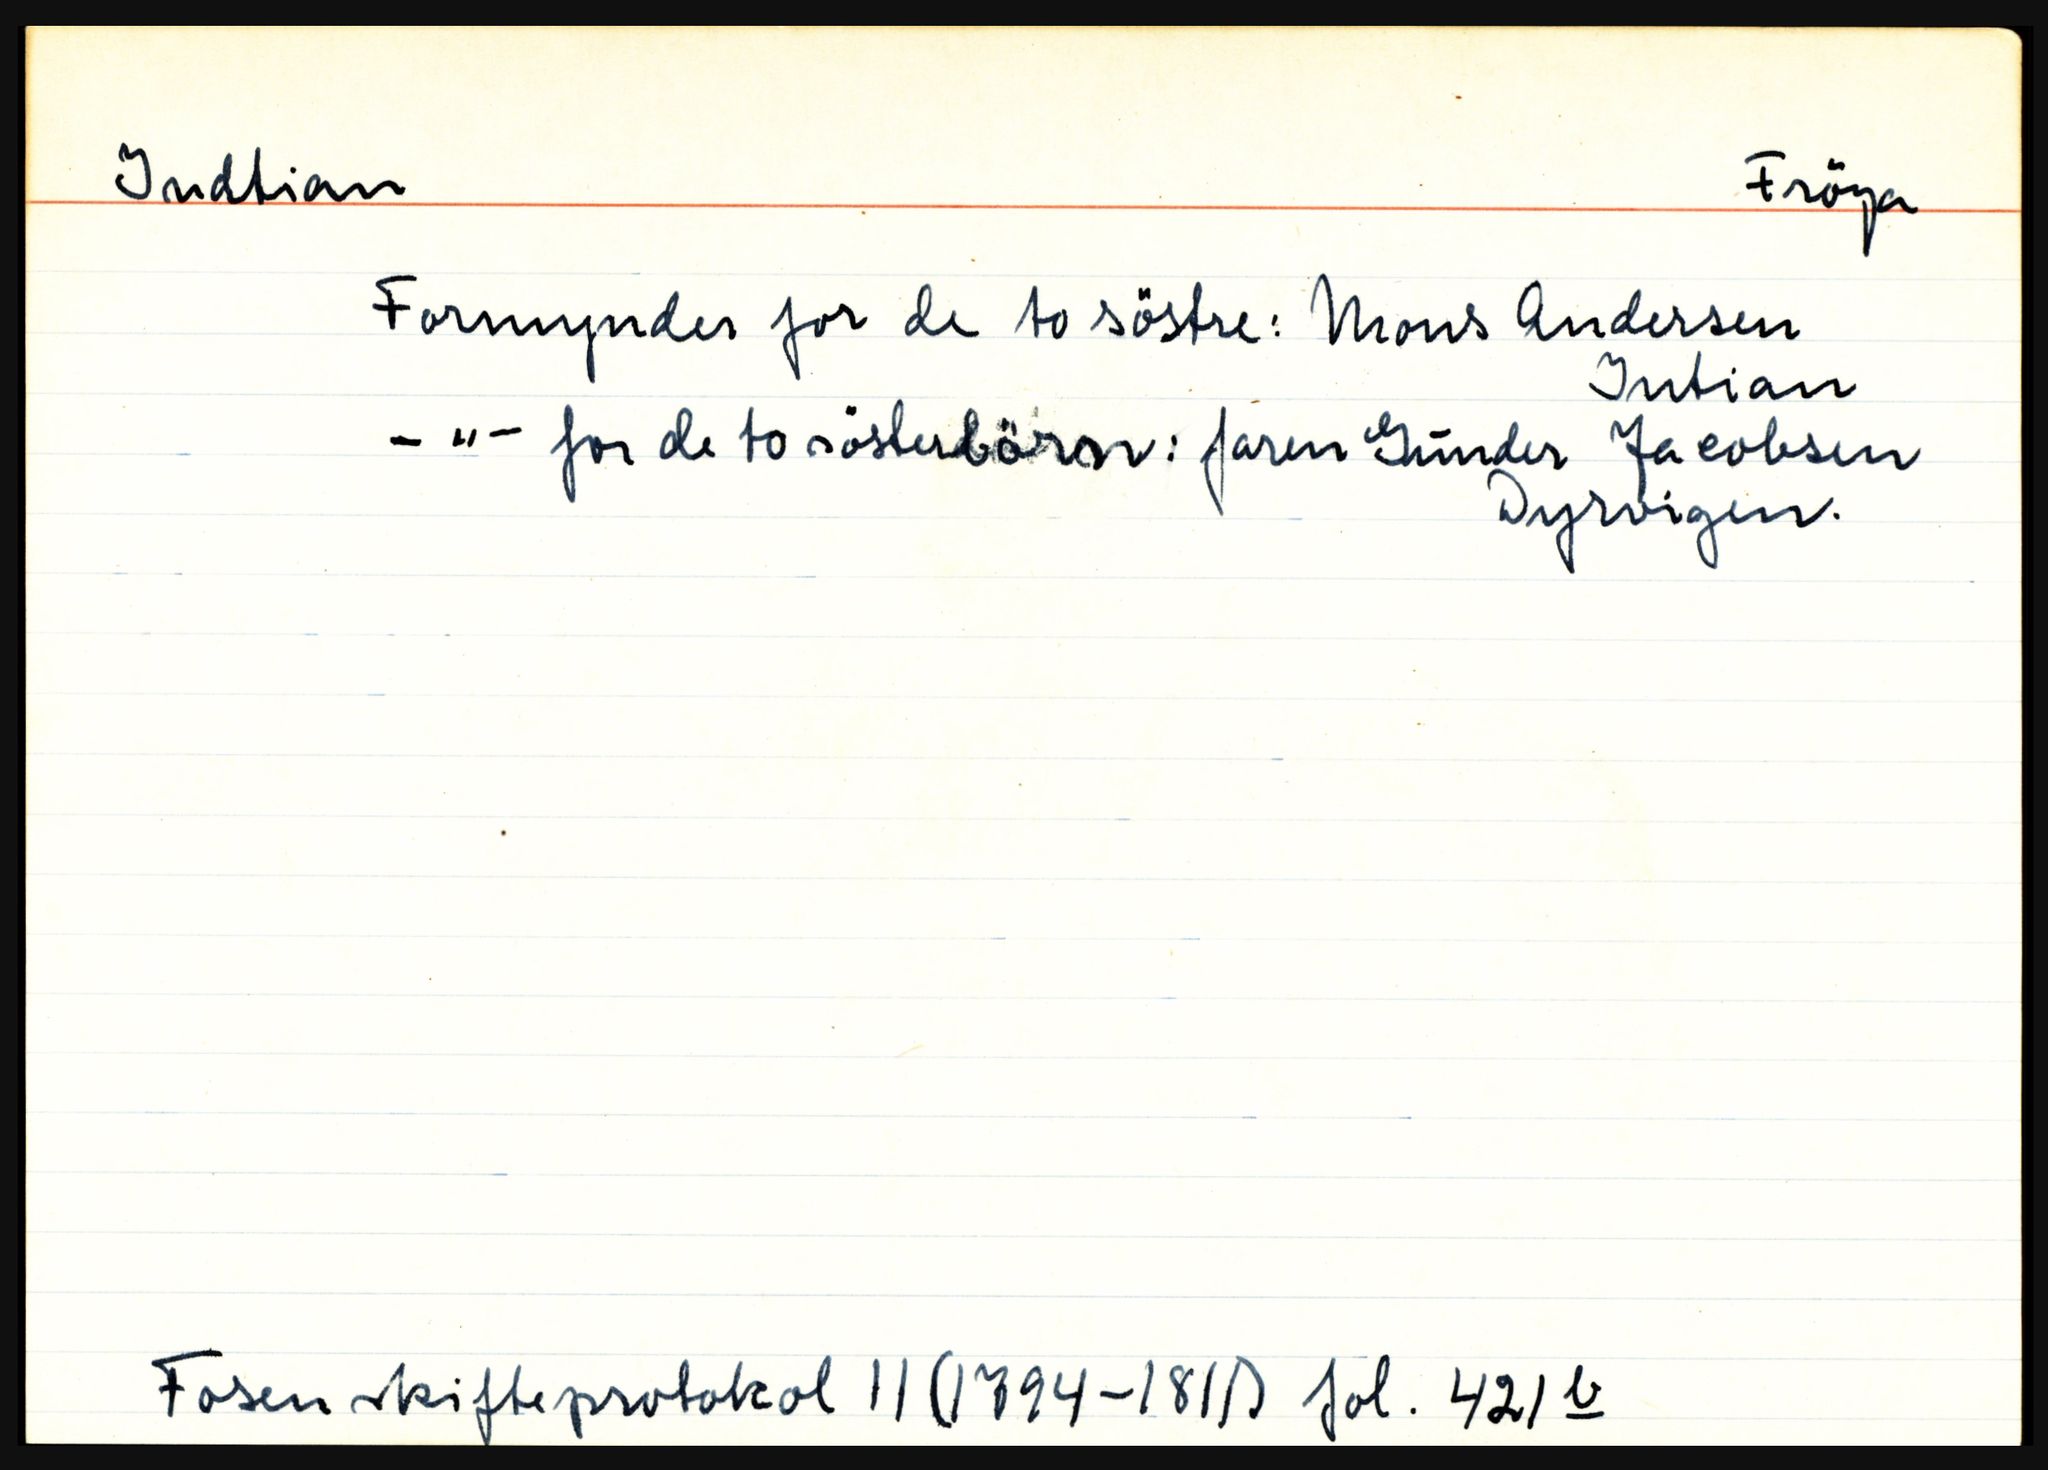 Indtian Fröya
Formynder for de to söstre: Mons Andersen
Intian
- " - for de to sösterbörn: faren Gunder Jacobsen
Dyrvigen.
Fosen skifteprotokol 11 (1794-1811) fol. 421 b